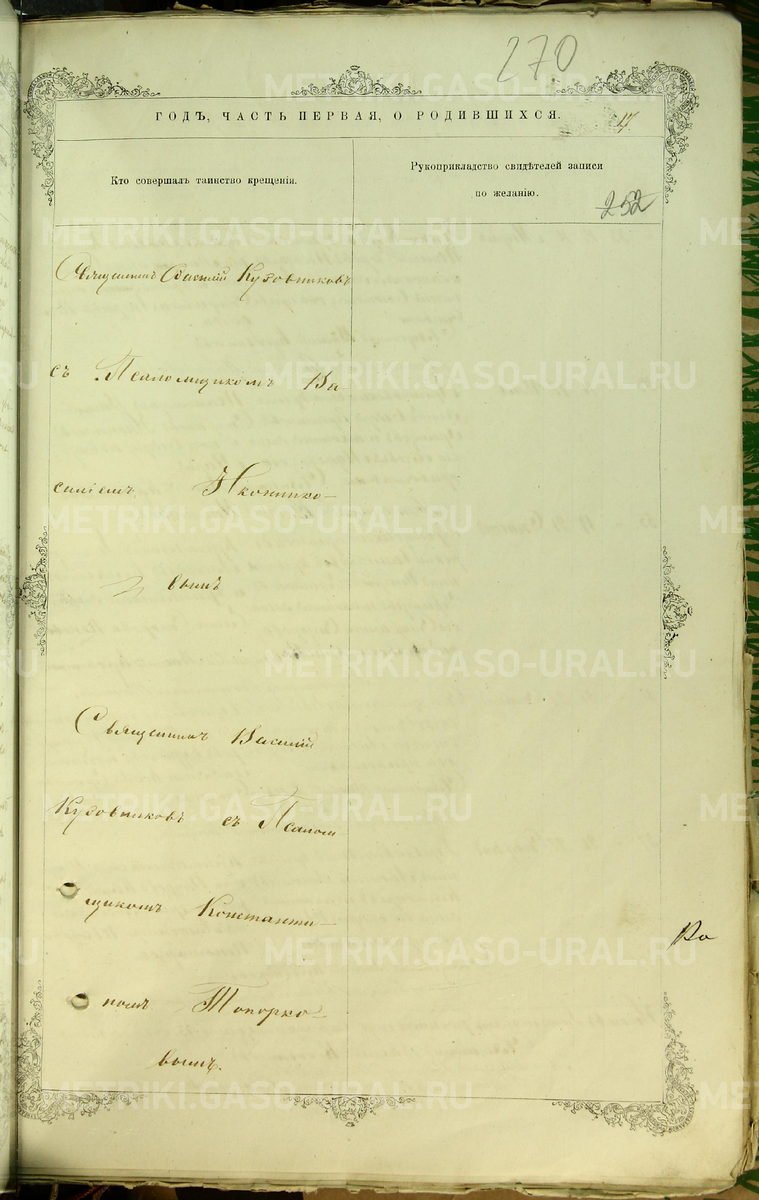 270
ГОДЪ, ЧАСТЬ ПЕРВАЯ, О РОДИВШИХСЯ.
17
Кто совершалъ таинство крещенія.
Рукоприкладство свидѣтелей записи
по желанію.
252
Священникъ Василій Кузовниковъ
съ Псаломщикомъ Ва-
силіемъ Иконнико-
вымъ
Священникъ Василій
Кузовниковъ съ Псалом
щикомъ Константи-
номъ Топорко-
вымъ.
METRIKI.GASO-URAL.RU